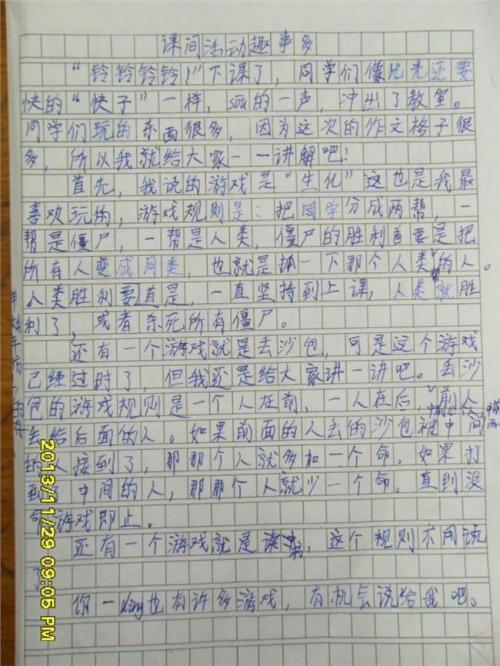 课间活动趣事多
“铃铃铃铃！”下课了，同学们像比光还要
快的“快子”一样，sou的一声，冲出了教室。
同学们玩的东西很多，因为这次的作文格子很
多，所以我就给大家一一讲解吧！
首先，我说的游戏是“生化”这也是我最
喜欢玩的，游戏规则是：把同学分成两帮，一
帮是僵尸，一帮是人类，僵尸的胜利首要是把
所有人变成同类，也就是抓一下那个人类的人。
人类胜利要首是，一直坚持到上课，人类就胜
利了，或者杀死所有僵尸。
还有一个游戏就是丢沙包，可是这个游戏
已经过时了，但我还是给大家讲一讲吧。丢沙
包的游戏规则是一个人在前，一人在后，前人
丢给后面的人。如果前面的人丢的沙包被中间
的人接到了，那那个人就多加一个命。如果打
到了中间的人，那那个人就少一个命。直到没
命游戏即止。
还有一个游戏就是读书，这个规则不用说
了
你一ding也有许多游戏，有机会说给我吧。
2013/11/29 09:05 PM